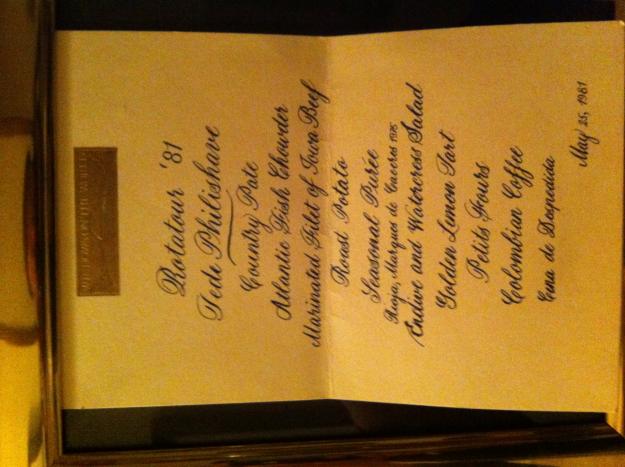 WINDOWS ON THE WORLD
Rotatour '81
Fede Philishave
Country Pate
Atlantic Fish Chowder
Marinated Filet of Iowa Beef
Roast Potato
Seasonal Purée
Rioja, Marques de Caceres 1975
Endive and Watercress Salad
Golden Lemon Tart
Petits Fours
Colombian Coffee
Cena de Despedida
May 25, 1981